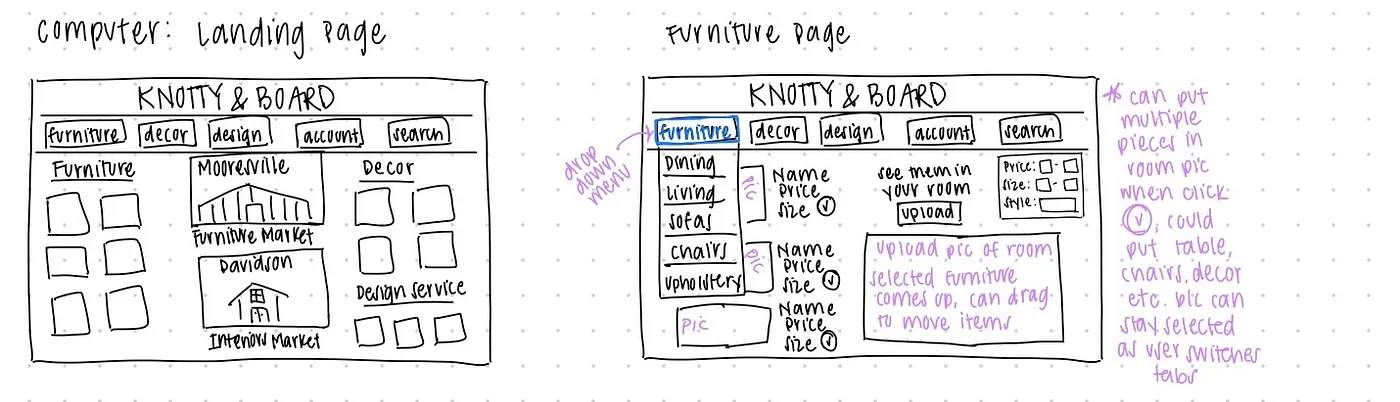 Computer: Landing Page
KNOTTY & BOARD
furniture decor design account search
Furniture
Mooresville
Furniture Market
Davidson
Interiors Market
Decor
Design service
Furniture Page
KNOTTY & BOARD
furniture decor design account search
drop
down
menu
Dining
Living
sofas
chairs
upholstery
pic
Name
Price
size ✓
pic
Name
Price
size ✓
pic
Name
Price
size ✓
see them in
your room
upload
Price: -
size: -
style:
upload pic of room
selected furniture
comes up, can drag
to move items
* can put
multiple
pieces in
room pic
when click
✓, could
put table,
chairs, decor
etc. b/c can
stay selected
as user switches
tabs